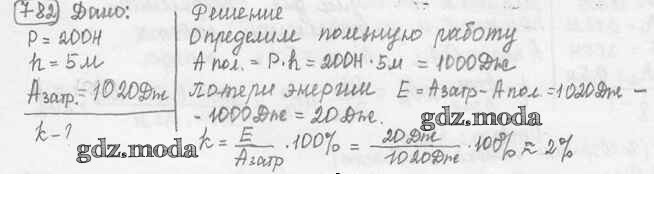 782 Дано:
P = 200Н
h = 5м
Aзатр. = 1020Дж
k - ?
Решение
Определим полезную работу
A пол. = P · h = 200Н · 5м = 1000Дж
Потери энергии E = Aзатр - A пол = 1020Дж -
- 1000Дж = 20Дж.
k = E/Aзатр · 100% = 20Дж/1020Дж · 100% ≈ 2%
gdz.moda
gdz.moda